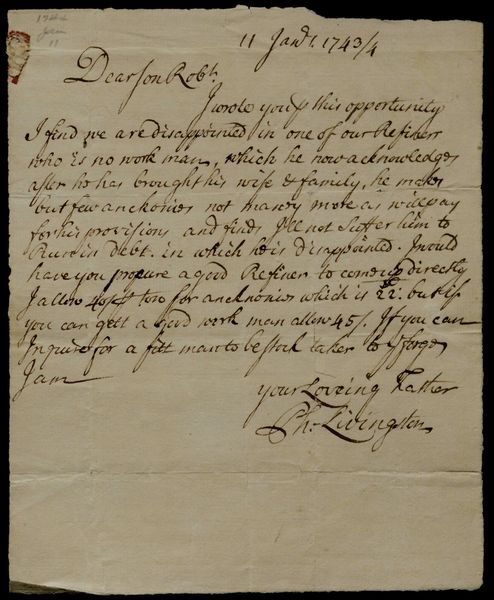 1744
Jan
11
11 Jan.ʸ 1743/4
Dear Son Rob.ᵗ
I wrote you p this opportunity
I find we are disappointed in one of our Refiners
who is no work man, which he now acknowledges
after he has brought his wife & family, he makes
but few anckonies not many more as will pay
for his provisions and finds I'll not Suffer him to
Run in Debt. in which he is disappointed. I would
have you procure a good Refiner to come up directly
I allow 40/ p ton for anckonies which is but if
you can gett a good work man allow 45/. If you can
Inquire for a fitt man to be Stock taker to yᵉ forge
I am
your Loveing Father
Ph: Livingston